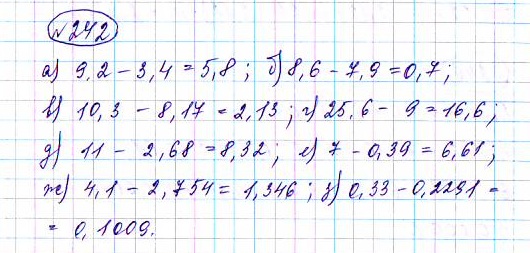 №242
а) 9,2 - 3,4 = 5,8 ; б) 8,6 - 7,9 = 0,7 ;
в) 10,3 - 8,17 = 2,13 ; г) 25,6 - 9 = 16,6 ;
д) 11 - 2,68 = 8,32 ; е) 7 - 0,39 = 6,61 ;
ж) 4,1 - 2,754 = 1,346 ; з) 0,33 - 0,2291 =
= 0,1009.